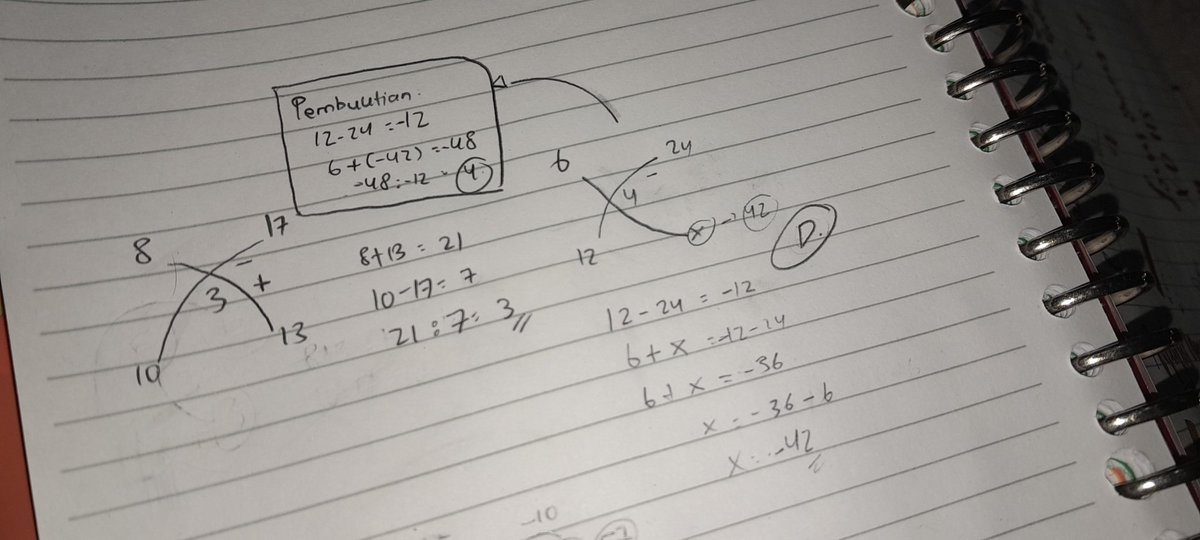 Pembuutian.
12-24 = -12
6+(-42) = -48
-48:-12 = 4
8 17
-
3 +
10 13
8+13 = 21
10-17 = 7
21 : 7 = 3
6 24
4 -
12 x → 42
D.
12-24 = -12
6+x = -12-24
6+x = -36
x = -36-6
x = -42
-10
-7